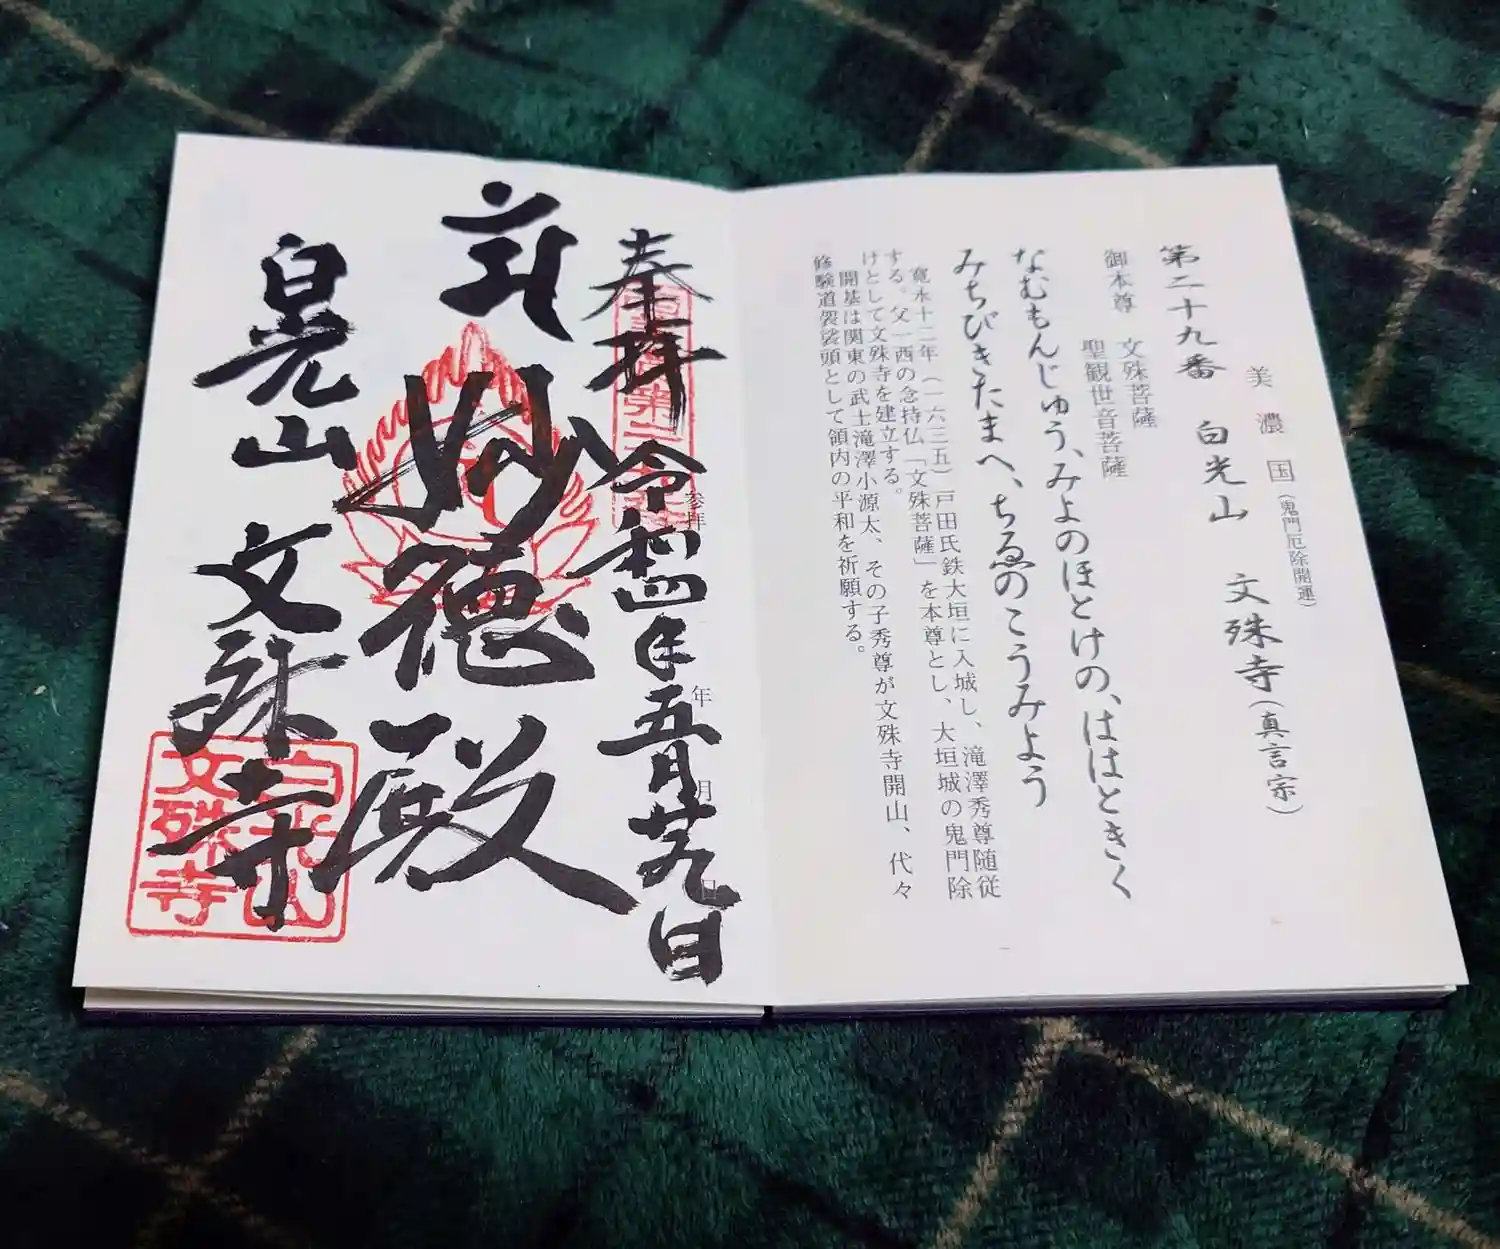 美濃国(鬼門厄除開運)
第二十九番 白光山 文殊寺(真言宗)
御本尊 文殊菩薩
聖観世音菩薩
なむもんじゅう、みよのほとけの、ははときく
みちびきたまへ、ちゑのこうみよう
寛永十二年(一六三五)戸田氏鉄大垣に入城し、滝澤秀尊随従
する。父一西の念持仏「文殊菩薩」を本尊とし、大垣城の鬼門除
けとして文殊寺を建立する。
開基は関東の武士滝澤小源太、その子秀尊が文殊寺開山、代々
修験道袈裟頭として領内の平和を祈願する。
奉拝 令和四年五月廿九日
参拝 年 月 日
妙徳殿
白光山 文殊寺
白光山
文殊寺